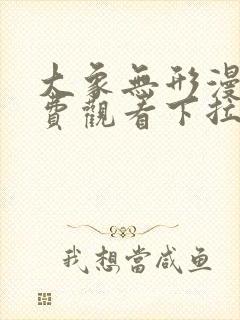 大象無形漫
費觀看下拉
我想當咸鱼